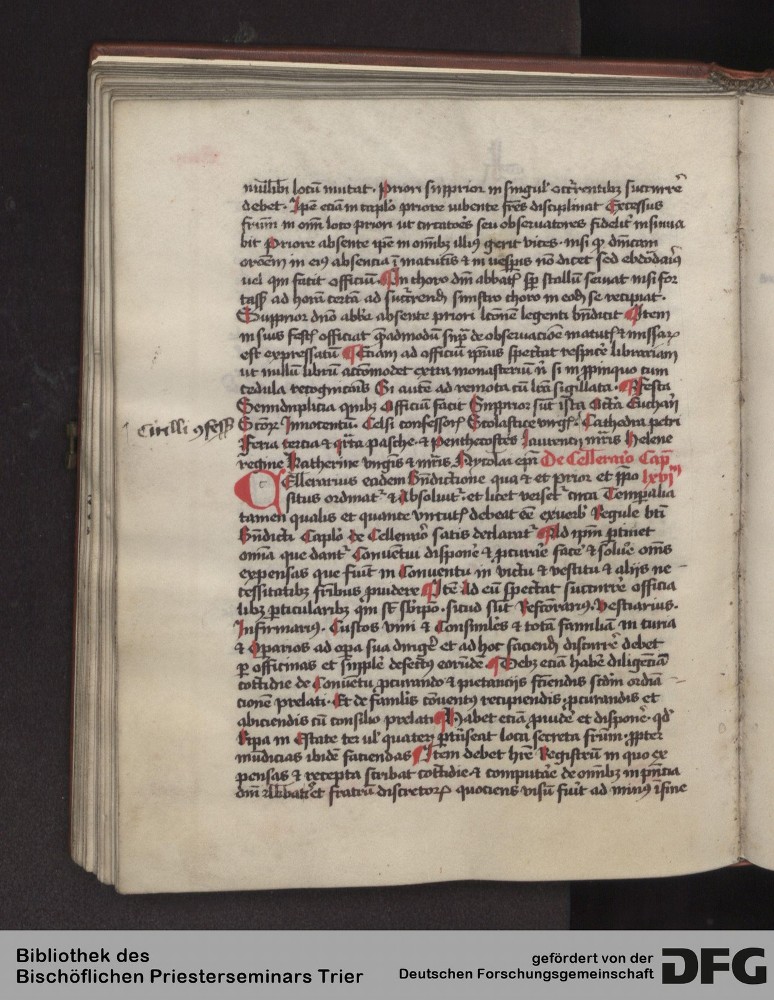 nullibi locū mutat. Priori supprior in singul' occ̄rentibꝫ succurrē
debet. Ip̄e eciā in cap̄lo priore iubente fr̄es disciplinat Excessus
fr̄um in om̄i loco priori ut circatoēs seu obseruatores fidelit' insinua
bit Priore absente ip̄e in om̄ibꝫ illiꝰ gerit vices. nisi qꝫ dn̄icam
or̄oem in eiꝰ absencia ī matutīs & in uesp̄is nō dicet sed ebdōdariꝰ
uel qui facit officiū In choro dn̄i abbatꝭ sp̄ stallū seruat nisi for
tass̄ ad horā certā ad succ̄rendū sinistro choro in eod̄ se recipiat.
Supprior dn̄o abb̄e absente priori lc̄onē legenti bn̄dicit Item
in suis festꝭ officiat q̄admodū sup̄ de obseruacōe matutꝭ & missaꝝ
est expressatū Etiam ad officiū ip̄ius spectat respicē librariam
ut nullū librū accōmodet extra monasteriū nisi in ꝓpinquo cum
cedula recognicōis Si autē ad remota cū lr̄a sigillata. Festa
Semiduplicia quibꝫ Officium facit Supprior sūt ista Octā Eucharij
Sctōꝝ Innocentū. Celsi confessorꝭ Scolastice uirgꝭ. Cathedra petri
Cirilli ꝯfess̄
Feria tercia & q̄rta pasche. & Penthecostes Laurentij mr̄is Helene
regine Katherine uirgīs & mr̄is. Nycolai ep̄i De Cellerario Cap̄ lxvi
Cellerarius eadem bn̄dictione qua & et prior et sp̄p̄o
situs ordinat' & Absoluit'. et licet versetꝭ circa Temp̄alia
tamen qualis et quante virtutꝭ debeat eē ex uerbꝭ Regule bt̄i
Bn̄dicti Cap̄lo de Cellerariō satis declarat' Ad ip̄m ꝑtinet
om̄ia que dant' Conuentui disponē & ꝓcurare facē & soluē om̄s
expensas que fiūt in Conuentu in victu & vestitu & alijs ne-
cessitatibꝫ fr̄ibus ꝓuidere Itē Ad eū spectat succurrē officia
libꝫ ꝑticularibꝫ qui st̄ sb ip̄o. sicud sūt Refectorariꝰ. Vestiarius.
Infirmariꝰ. Custos vini & Consimiles & totā familiā in curia
& Oꝑarios ad oꝑa sua dirigē et ad hoc faciend̄ discurrē debet
ꝑ officinas et supplē defectꝰ eorūde Debꝫ eciā habē diligēciā
cottidie de Conuētu ꝓcurando & pietancijs fiendis scd̄m ordia-
cionē prelati. Et de famlis cōuentꝰ recipiendis ꝓcurandis et
abiciendis cū consilio prelati Habet eciā ꝓuidē et disponē. qd̄
Ripa in Estate ter ul' quater ꝑtrāseat loca secreta fr̄um. ꝓpter
mūdicias ibidē faciendas Item debet hr̄e Registrū in quo ex
pensas & recepta scribat cottidie & computāe de om̄ibꝫ in p̄n̄cia
dn̄i Abbatꝭ et fratrū discretoꝝ quociens visū fuīt ad minꝰ ī fine
Bibliothek des
Bischöflichen Priesterseminars Trier
gefördert von der
Deutschen Forschungsgemeinschaft DFG